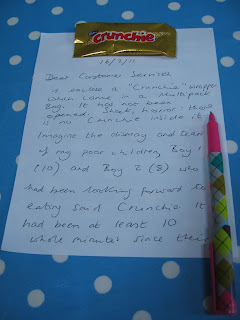 Crunchie
16/3/11
Dear Customer Services
I enclose a "Crunchie" wrapper
which came in a Multipack
Bag. It has not been
opened. Shock, horror - there
is no Crunchie inside it
Imagine the dismay and
of my poor children, Boy 1
(10) and Boy 2 (8) who
had been looking forward to
eating said Crunchie. It
had been at least 10
whole minutes since their